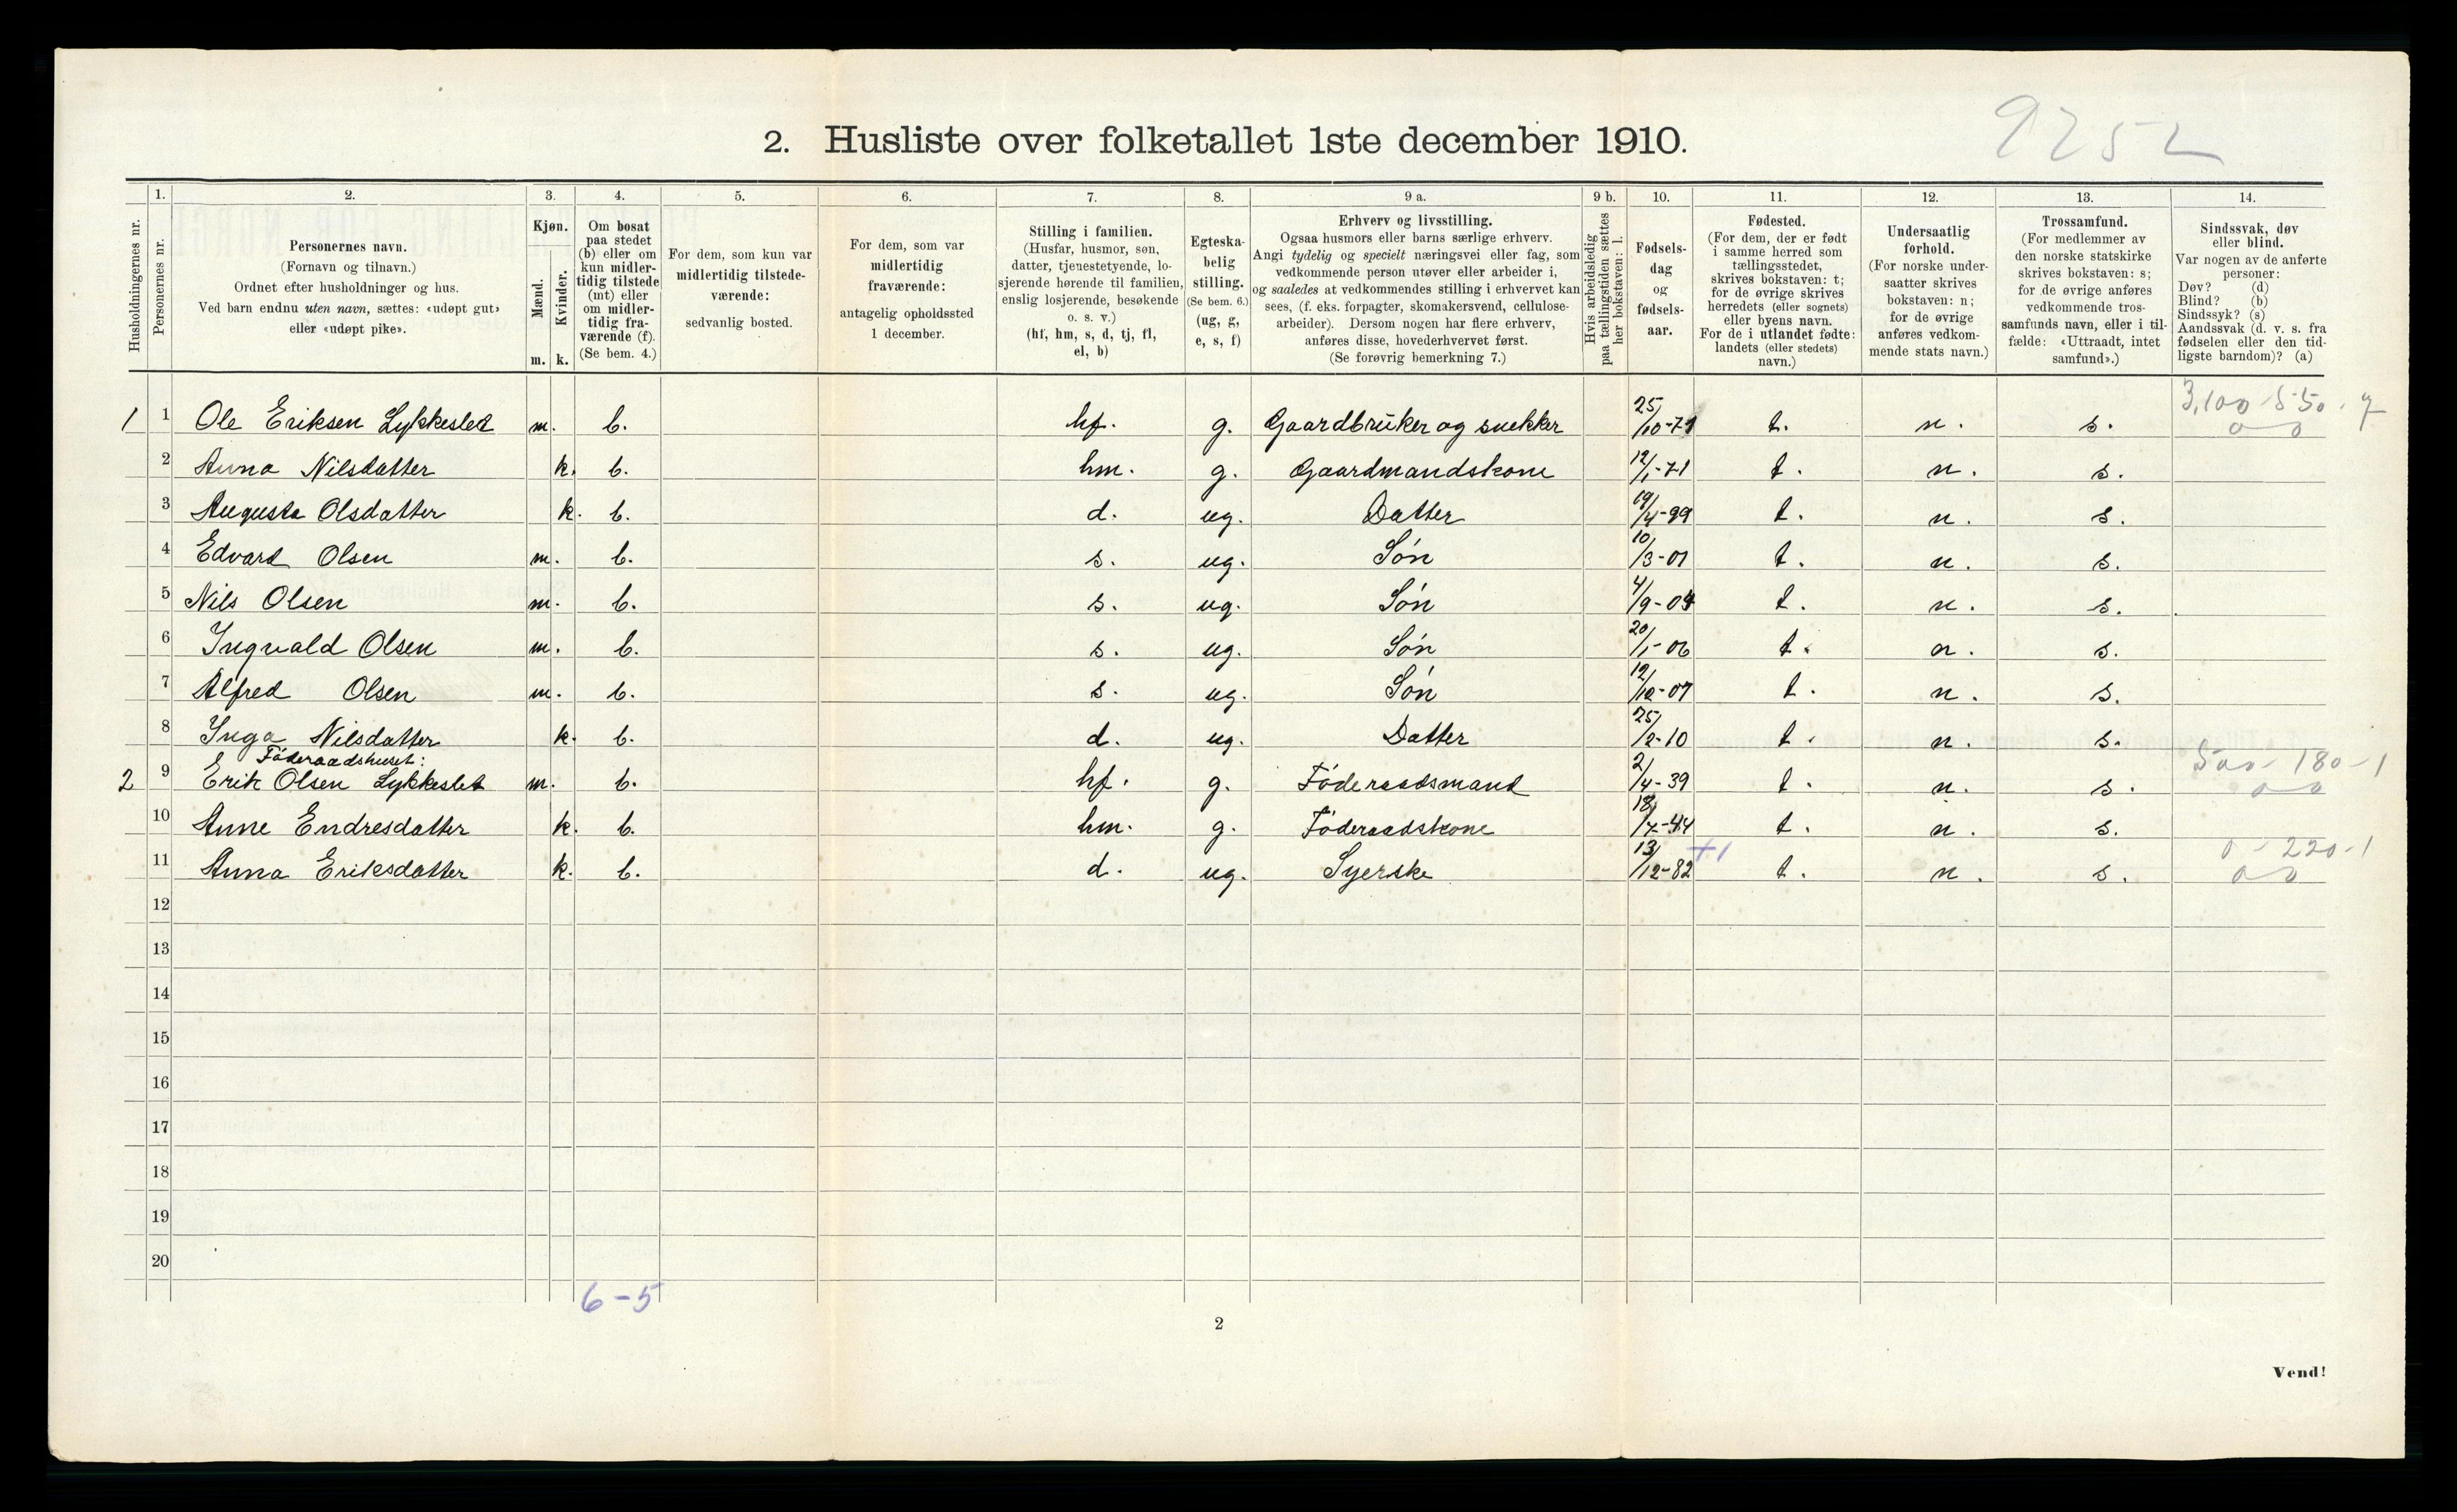 9252
2. Husliste over folketallet 1ste december 1910.
Husholdningernes nr.
1. Personernes nr.
2. Personernes navn. (Fornavn og tilnavn.) Ordnet efter husholdninger og hus. Ved barn endnu uten navn, sættes: «udøpt gut» eller «udøpt pike».
3. Kjøn. Mænd. m. Kvinder. k.
4. Om bosat paa stedet (b) eller om kun midlertidig tilstede (mt) eller om midlertidig fraværende (f). (Se bem. 4.)
5. For dem, som kun var midlertidig tilstedeværende: sedvanlig bosted.
6. For dem, som var midlertidig fraværende: antagelig opholdssted 1 december.
7. Stilling i familien. (Husfar, husmor, søn, datter, tjenestetyende, losjerende hørende til familien, enslig losjerende, besøkende o. s. v.) (hf, hm, s, d, tj, fl, el, b)
8. Egteskabelig stilling. (Se bem. 6.) (ug, g, e, s, f)
9 a. Erhverv og livsstilling. Ogsaa husmors eller barns særlige erhverv. Angi tydelig og specielt næringsvei eller fag, som vedkommende person utøver eller arbeider i, og saaledes at vedkommendes stilling i erhvervet kan sees, (f. eks. forpagter, skomakersvend, cellulosearbeider). Dersom nogen har flere erhverv, anføres disse, hovederhvervet først. (Se forøvrig bemerkning 7.)
9 b. Hvis arbeidsledig paa tællingstiden sættes her bokstaven: l.
10. Fødselsdag og fødselsaar.
11. Fødested. (For dem, der er født i samme herred som tællingsstedet, skrives bokstaven: t; for de øvrige skrives herredets (eller sognets) eller byens navn. For de i utlandet fødte: landets (eller stedets) navn.)
12. Undersaatlig forhold. (For norske undersaatter skrives bokstaven: n; for de øvrige anføres vedkommende stats navn.)
13. Trossamfund. (For medlemmer av den norske statskirke skrives bokstaven: s; for de øvrige anføres vedkommende trossamfunds navn, eller i tilfælde: «Uttraadt, intet samfund».)
14. Sindssvak, døv eller blind. Var nogen av de anførte personer: Døv? (d) Blind? (b) Sindssyk? (s) Aandssvak (d. v. s. fra fødselen eller den tidligste barndom)? (a)
3,100 550 . 7
1 1 Ole Eriksen Lykkeslet m. b. hf. g. Gaardbruker og snekker 25/10-71 t. n. s. 0 0
2 Anna Nilsdatter k. b. hm. g. Gaardmandskone 12/1-71 t. n. s.
3 Augusta Olsdatter k. b. d. ug. Datter 19/4-99 t. n. s.
4 Edvard Olsen m. b. s. ug. Søn 10/3-01 t. n. s.
5 Nils Olsen m. b. s. ug. Søn 4/9-04 t. n. s.
6 Ingvald Olsen m. b. s. ug. Søn 20/1-06 t. n. s.
7 Alfred Olsen m. b. s. ug. Søn 12/10-07 t. n. s.
8 Inga Nilsdatter k. b. d. ug. Datter 25/2-10 t. n. s.
Føderaadshuset: 500 - 180 - 1
2 9 Erik Olsen Lykkeslet m. b. hf. g. Føderaadsmand 2/4-39 t. n. s. 0 0
10 Anne Endresdatter k. b. hm. g. Føderaadskone 18/7-44 t. n. s.
+1 0 - 220 - 1
11 Anna Eriksdatter k. b. d. ug. Syerske 13/12-82 t. n. s. 0 0
12
13
14
15
16
17
18
19
20
6-5
2
Vend!